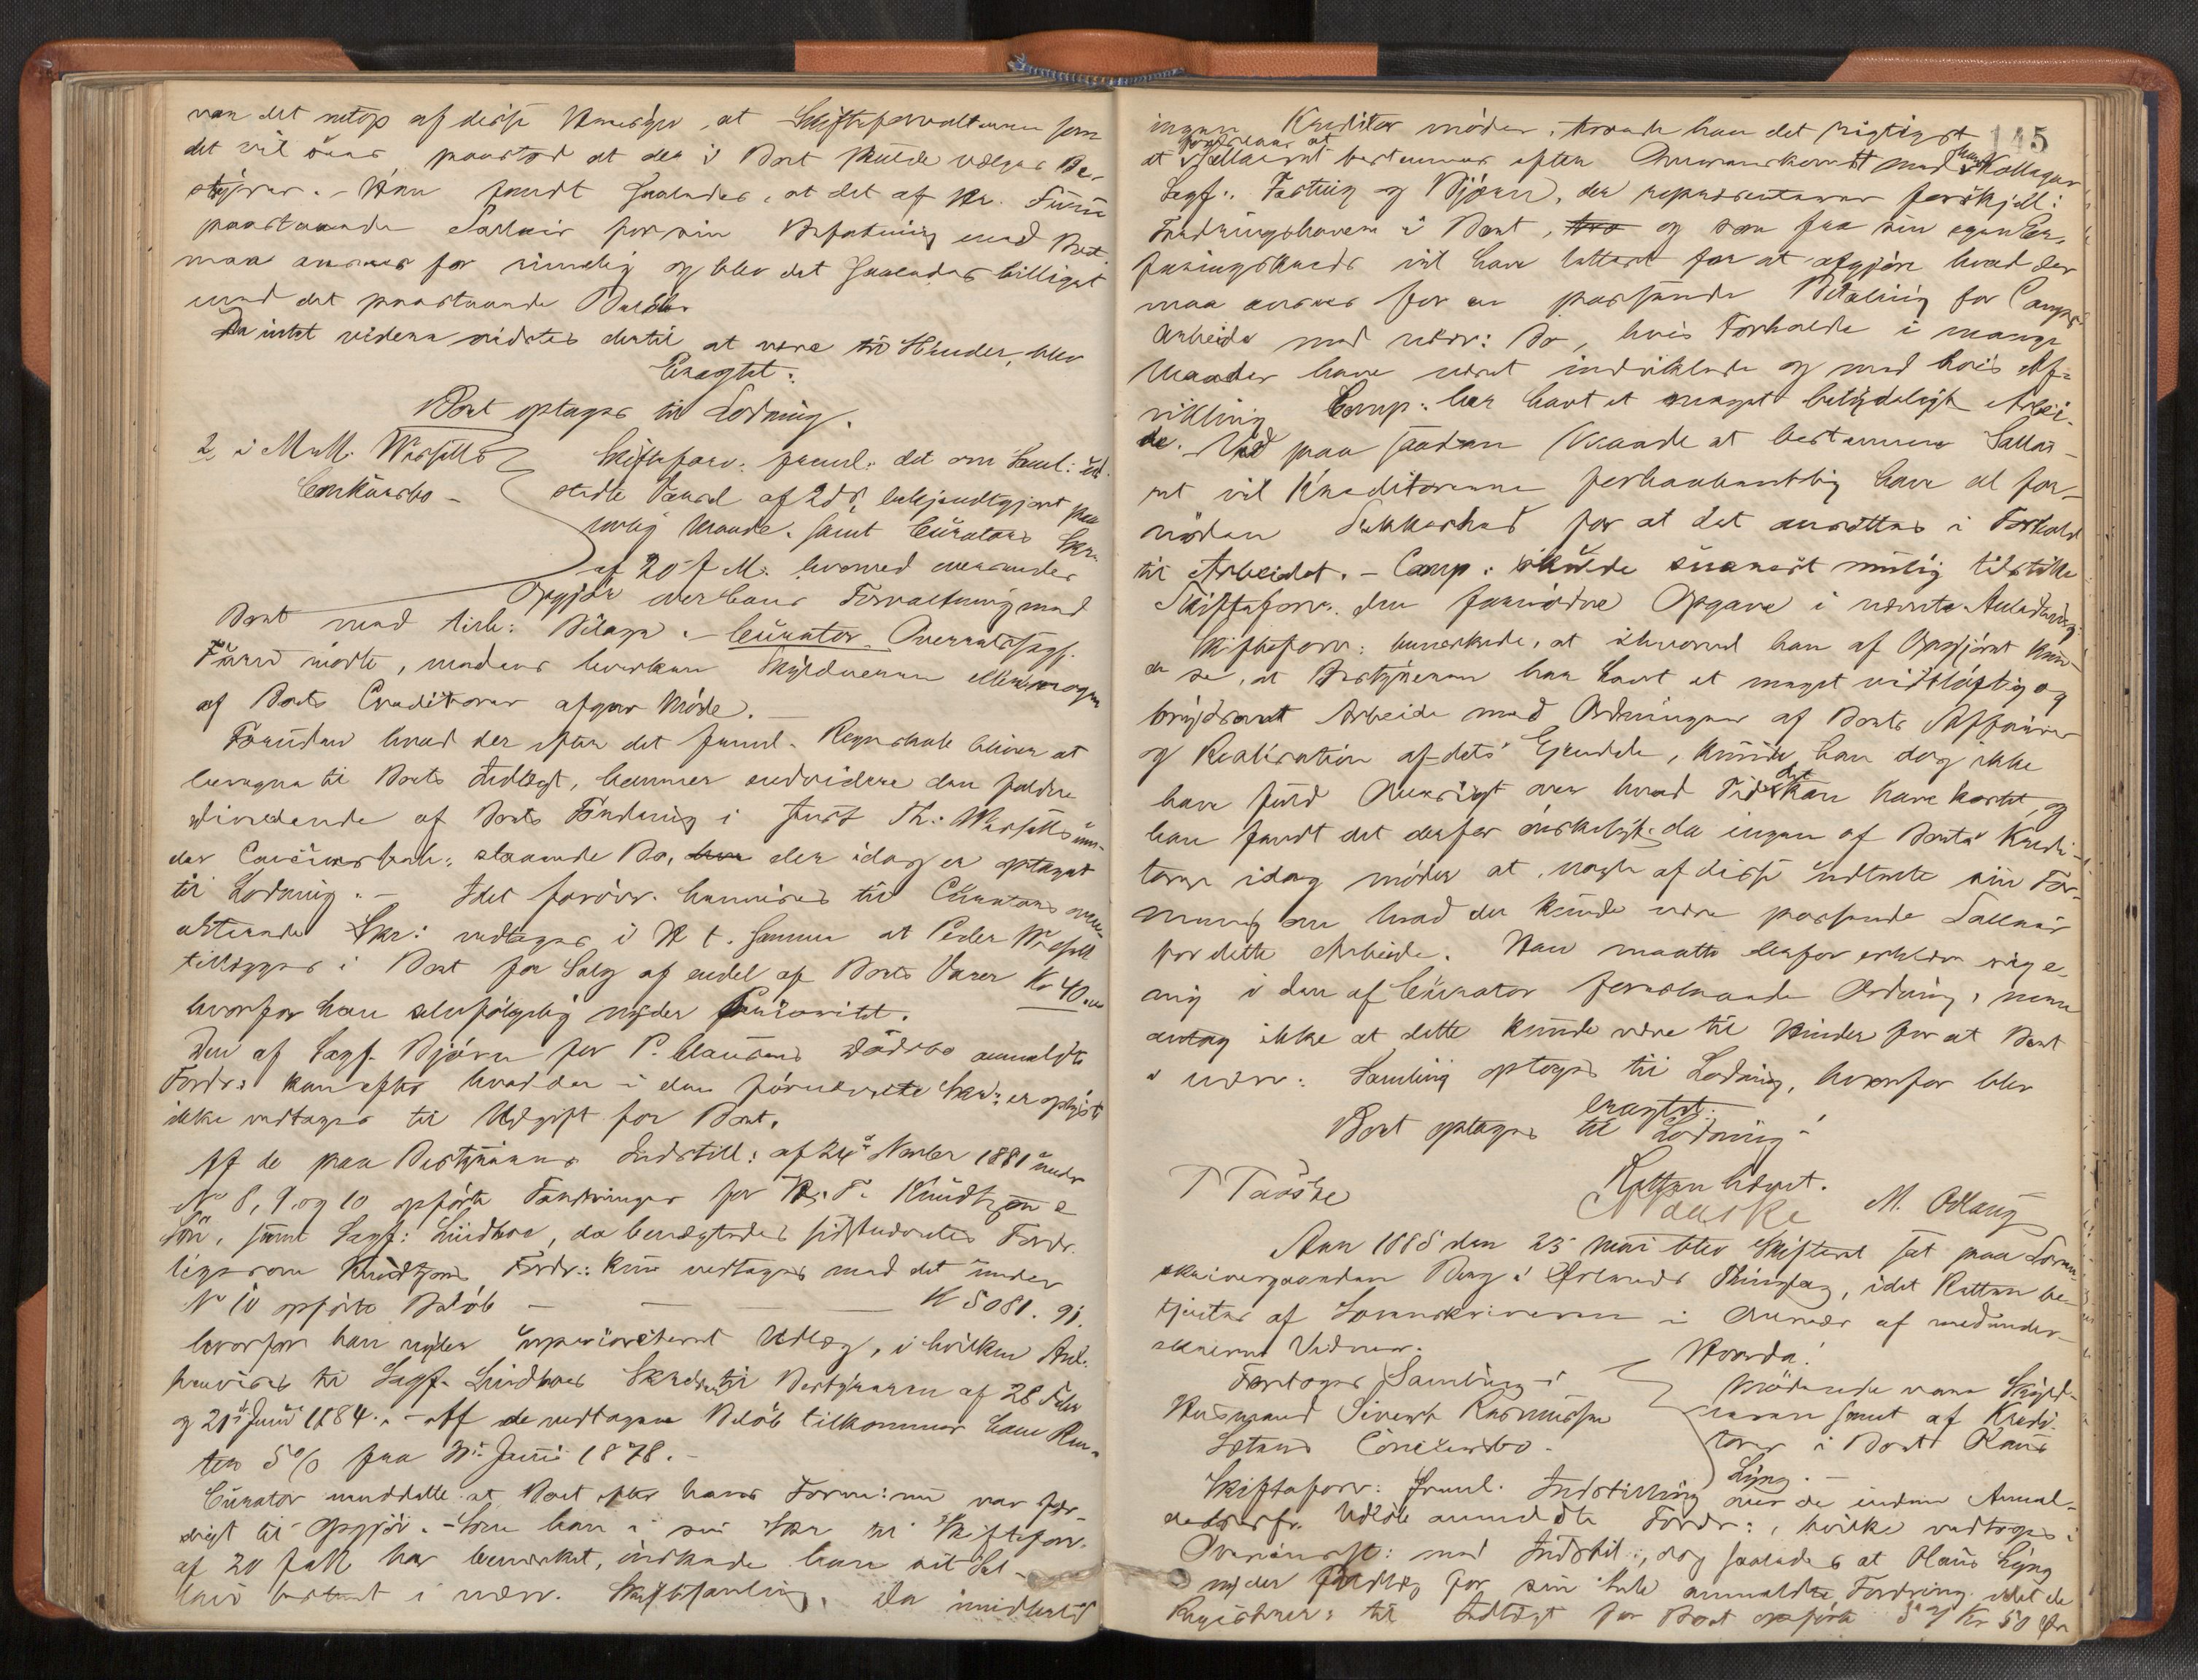 var det netop af disse Hensyn, at Skifteforvalteren som
det vil sees paastod at der i Boet skulde vælges Be-
styrer. – Han fandt saaledes, at det af Hr. Furu
paastaaende Sallair for sin Befatning med Boet
maa ansees for rimelig og blev det saaledes billiget
med det paastaaende Beløb.
Da intet videre vidstes dertil at være til Hinder, blev
Eragtet:
Boet optages til Lodning.
2 i M. Wessels
Conkursbo –
Skifteforv. freml. det om Saml: ud-
stedte Varsel af 2 ds, bekjendtgjort paa
lovlig Maade. samt Curators Skr.
af 20 f. M. hvormed oversendes
Opgjør over hans Forvaltning med
Boet med tilh: Bilage. – Curator Overretssagf.
Furu mødte, medens hverken Skyldneren eller nogen
af Boets Creditorer afgav Møde. –
Foruden hvad der efter det freml. Regnskab bliver at
beregne til Boets Indtægt, kommer endvidere den faldne
Dividende af Boets Fordring i Th. Wessels un-
der Concursbeh: staaende Bo, der idag er optaget
til Lodning. – Idet forøvr. henvises til Curators oven-
citerende Skr: vedtages i H. t. samme at Peder Wessel
tillægges i Boet for Salg af endel af Boets Varer Kr 40.00
hvorfor han selvfølgelig nyder Prioritet.
Den af Sagf. Bjørn for P. Clausens Dødsbo anmeldte
Fordr: kan efter hvad der i den førnævnte Skr: er oplyst
ikke vedtages til Udgift for Boet.
Af de paa Bestyrerens Indstill: af 24de Novbr 1881 under
No 8, 9 og 10 opførte Fordringer for N. F. Knudtzon &
Søn, samt Sagf: Lindboe, da benægtedes sidstnævntes Fordr.
ligesom Knudtzons Fordr: kun vedtages med det under
No 10 opførte Beløb – — — K 5081. 91.
hvorfor han nyder uprioriteret Udlæg, i hvilken Anl.
henvises til Sagf. Lindboes Skrivelser til Bestyreren af 28 Febr
og 21de Juni 1884. – Af de vedtagne Beløb tilkommer ham Ren-
ter 5% fra Juni 1878. –
Curator meddelte at Boet efter hans Formen: nu var fær-
digt til Opgjør. – Som han i sin Skr til Skifteforv.
af 20 f M har bemærket, ønskede han sit Sal-
lair bestemt i nærv. Skiftesamling. Da imidlertid
145
ingen Kreditor møder, troede han det rigtigst
foreslaaes at
at Sallairet bestemmes efter Overenskomst med hans Kolleger
Sagf: Fasting og Bjørn, der repræsenterer forskjell:
Fordringshavere i Boet, og som fra sin egen Er-
faringskreds vil have lettest for at afgjøre hvad der
maa ansees for en passende Betaling for Comp:
Arbeide med nærv: Bo, hvis Forholde i mange
Maader have været indviklede og med hvis Af-
vikling Comp: har havt et meget betydeligt Arbei-
de. – Ved paa saadan Maade at bestemme Sallai-
ret vil Kreditorerne forhaabentlig have al for-
nøden Sikkerhed for at det ansættes i Forhold
til Arbeidet. – Comp: skulde snarest mulig tilstille
Skifteforv. den fornødne Opgave i nævnte Anledning.
Skifteforv: bemærkede, at ihvorvel han af Opgjøret kun-
de se, at Bestyreren har havt et meget vidtløftig og
brydsomt Arbeide med Ordningen af Boets Affairer
og Realisation af dets Eiendele, kunde han dog ikke
have fuld Oversigt over hvad Tid det kan have kostet og
han fandt det derfor ønskeligt da ingen af Boets Kredi-
torer idag møder at nogle af disse udtalte sin For-
mening om hvad der kunde være passende Sallair
for dette Arbeide. Han maatte derfor erklære sig e-
nig i den af Curator foreslaaede Ordning, men
antog ikke at dette kunde være til Hinder for at Boet
i nærv: Samling optoges til Lodning, hvorfor blev
eragtet:
Boet optages til Lodning. –
Retten hævet.
T Taaske
M. Odlaug
Aar 1885 den 23 Mai blev Skifteret sat paa Soren-
skrivergaarden Berg i Ørlandets Thinglag, idet Retten be-
tjentes af Sorenskriveren i Overvær af medunder-
skrivende Vidner.
Hvorda!
Foretoges Samling i
Husmand Sivert Rasmussen
Concursbo.
Mødende vare Skyld-
neren samt af Kredi-
torer i Boet Olaus
Lyng. –
Skifteforv: freml. Indstilling over de inden Anmel-
delsesfr. Udløb anmeldte Fordr:, hvilke vedtoges i
Overensst: med Indstil:, dog saaledes at Olaus Lyng
nyder for sin hele anmeldte Fordring, idet de
Registrer: til Indtægt for Boet opførte Kr 50 Øre